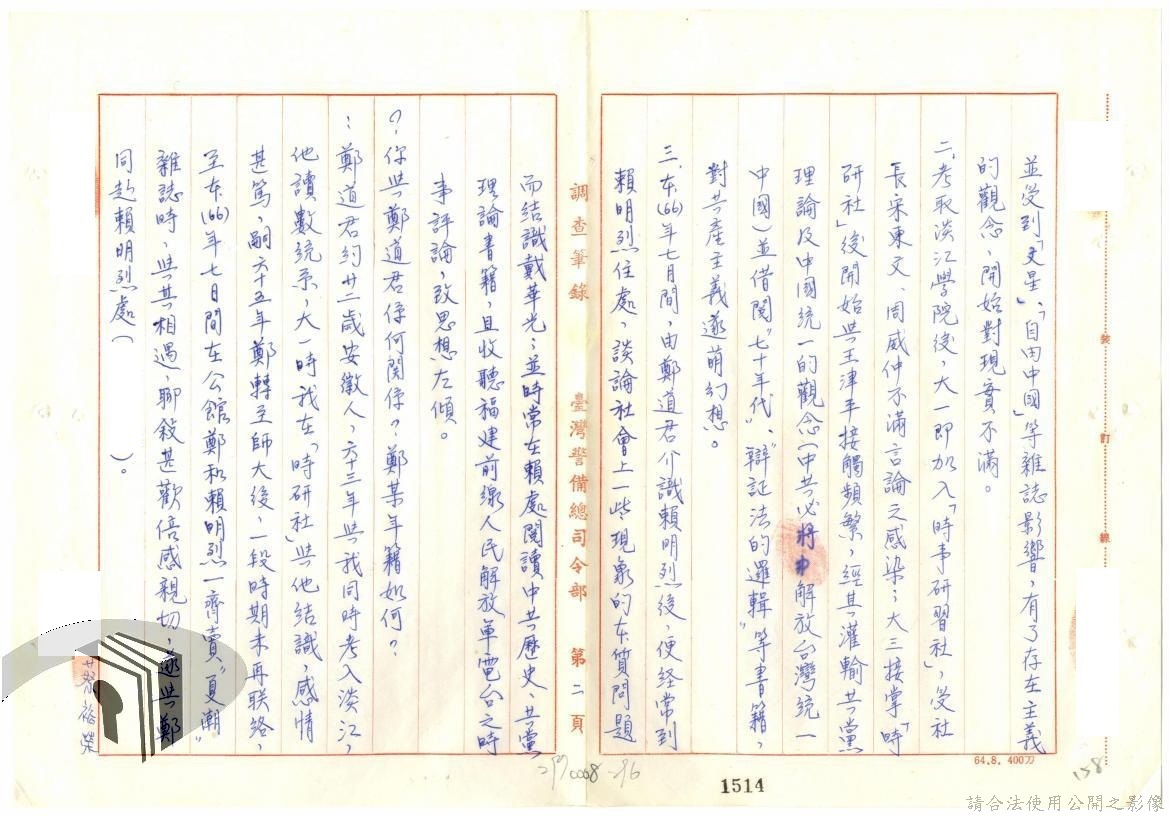 並受到「文星」、「自由中國」等雜誌影響，有了存在主義
的觀念，開始對現實不滿。
二、考取淡江學院後，大一即加入「時事研習社」，受社
長宋東文、周威仲不滿言論之感染；大三接掌「時
研社」後開始與王津平接觸頻繁，經其灌輸共黨
理論及中國統一的觀念（中共必將解放台灣統一
中國）並借閱“七十年代”、“辯証法的邏輯”等書籍，
對共產主義遂萌幻想。
三、本(66)年七月間，由鄭道君介識賴明烈後，便經常到
賴明烈住處，談論社會上一些現象的本質問題
調查筆錄 臺灣警備總司令部 第二頁
而結識戴華光；並時常在賴處閱讀中共歷史、共黨
理論書籍，且收聽福建前線人民解放軍電台之時
事評論，致思想左傾。
？：你與鄭道君係何關係？鄭某年籍如何？
：鄭道君約廿二歲安徽人，六十三年與我同時考入淡江，
他讀數統系，大一時我在「時研社」與他結識，感情
甚篤，嗣六十五年鄭轉至師大後，一段時期未再联絡，
至本(66)年七月間在公館鄭和賴明烈一齊賣“夏潮”
雜誌時，與其相遇，聊敘甚歡倍感親切，遂與鄭
同赴賴明烈處（ ）。
蔡裕榮
裝 訂 線
64.8. 400刀
158
1514
請合法使用公開之影像